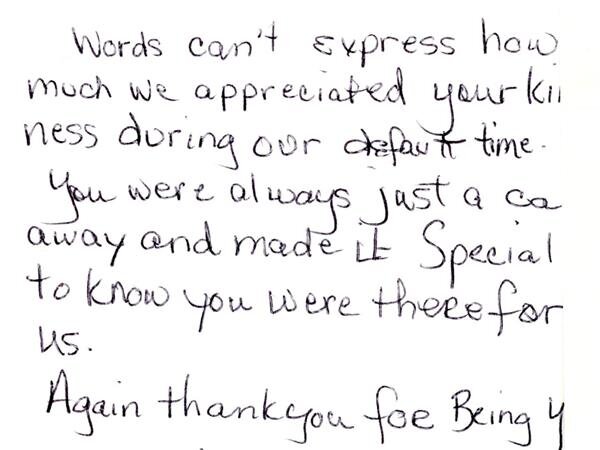 Words can't express how
much we appreciated your kin
ness during our defautt time.
You were always just a ca
away and made it Special
to know you were there for
us.
Again thank you foe Being y